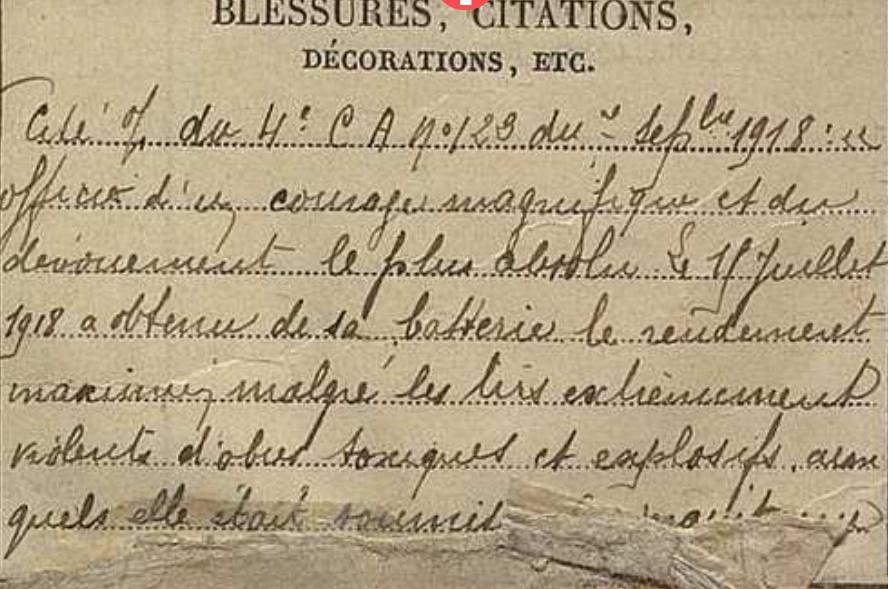 BLESSURES, CITATIONS,
DÉCORATIONS, ETC.
Cité du 4e C A no 123 du Sepbre 1918 : "
officier d'un courage magnifique et du
dévouement le plus absolu Le 15 Juillet
1918 a obtenu de sa batterie le rendement
maximum malgré les tirs extrêmement
violents d'obus toxiques et explosifs aux
quels elle était soumise